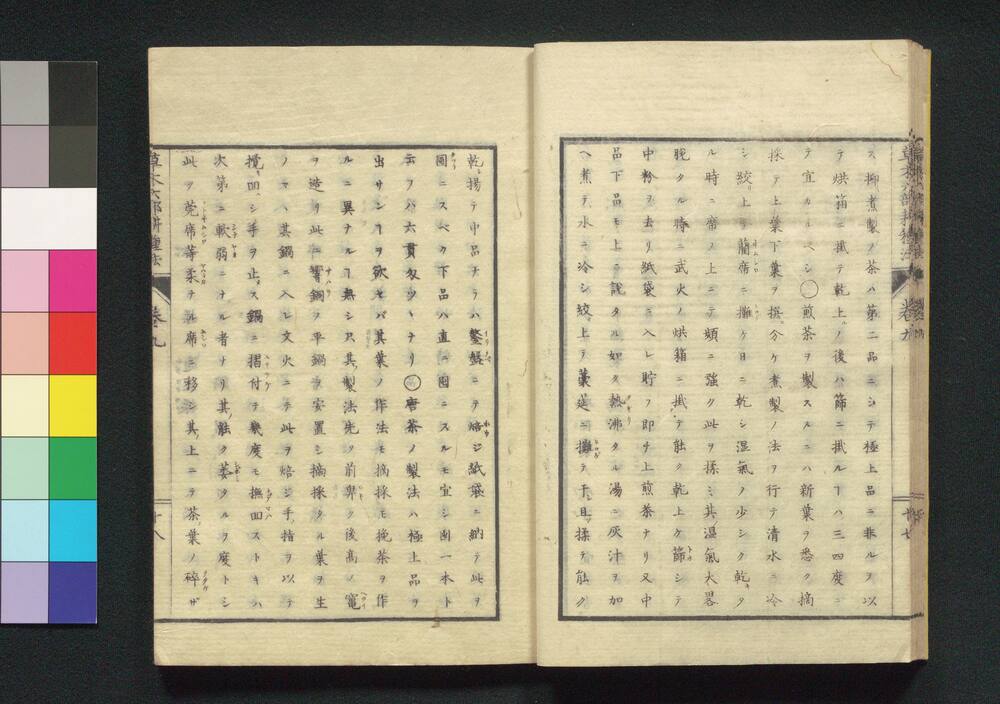 ス抑煮製ノ茶ハ第二品ニシテ極上品ニ非ルヲ以
テ烘箱ニ掛テ乾上ルノ後ハ篩ニ掛ルヿハ三四度ニ
テ宜カルベシ〇煎茶ヲ製スルニハ新葉ヲ悉ク摘
採テ上葉下葉ヲ撰分ケ煮製ノ法ヲ行テ清水ニ冷
シ絞上リ藺席ニ攤ケ日ニ乾シ湿氣ノ少シク乾キタ
ル時ニ席ノ上ニテ頻ニ強ク此ヲ揉ミ其温氣大畧
脱タル時ニ武火ノ烘箱ニ掛テ能ク乾上ケ篩シテ
中粉ヲ去リ紙袋ニ入レ貯フ即チ上煎茶ナリ又中
品下品モ上ニ説タル如ク熱沸タル湯ニ灰汁ヲ加
ヘ煮テ水ニ冷シ絞上テ藁莚ニ攤テ干且揉テ能ク
草木六部耕種法 巻九 十七
乾揚テ中品ナラハ鏊盤ニテ焙ジ紙袋ニ納テ此ヲ
圍ニスベク下品ハ直ニ圍ニスルモ宜シ圍一本ト
云フハ六貫匁ツヽナリ〇唐茶ノ製法ハ極上品ヲ
出サンヿヲ欲セバ其葉ノ作法モ摘採モ挽茶ヲ作
ルニ異ナルヿ無シ只其製法先ツ前卑ク後高ノ竈
ヲ造リ此ニ響銅ヲ平鍋ヲ安置シ摘採タル葉ヲ生
ノマヽ其鍋ニ入レ文火ニテ此ヲ焙ジ手指ヲ以テ
攪回シ手ヲ止ス鍋ニ摺付テ幾度モ撫回ストキハ
次第ニ軟弱ニナル者ナリ其能ク萎タルヲ度トシ
此ヲ莞席等柔ナル席ニ移シ其上ニテ茶葉ノ碎ザ
草木六部耕種法 巻九 十八